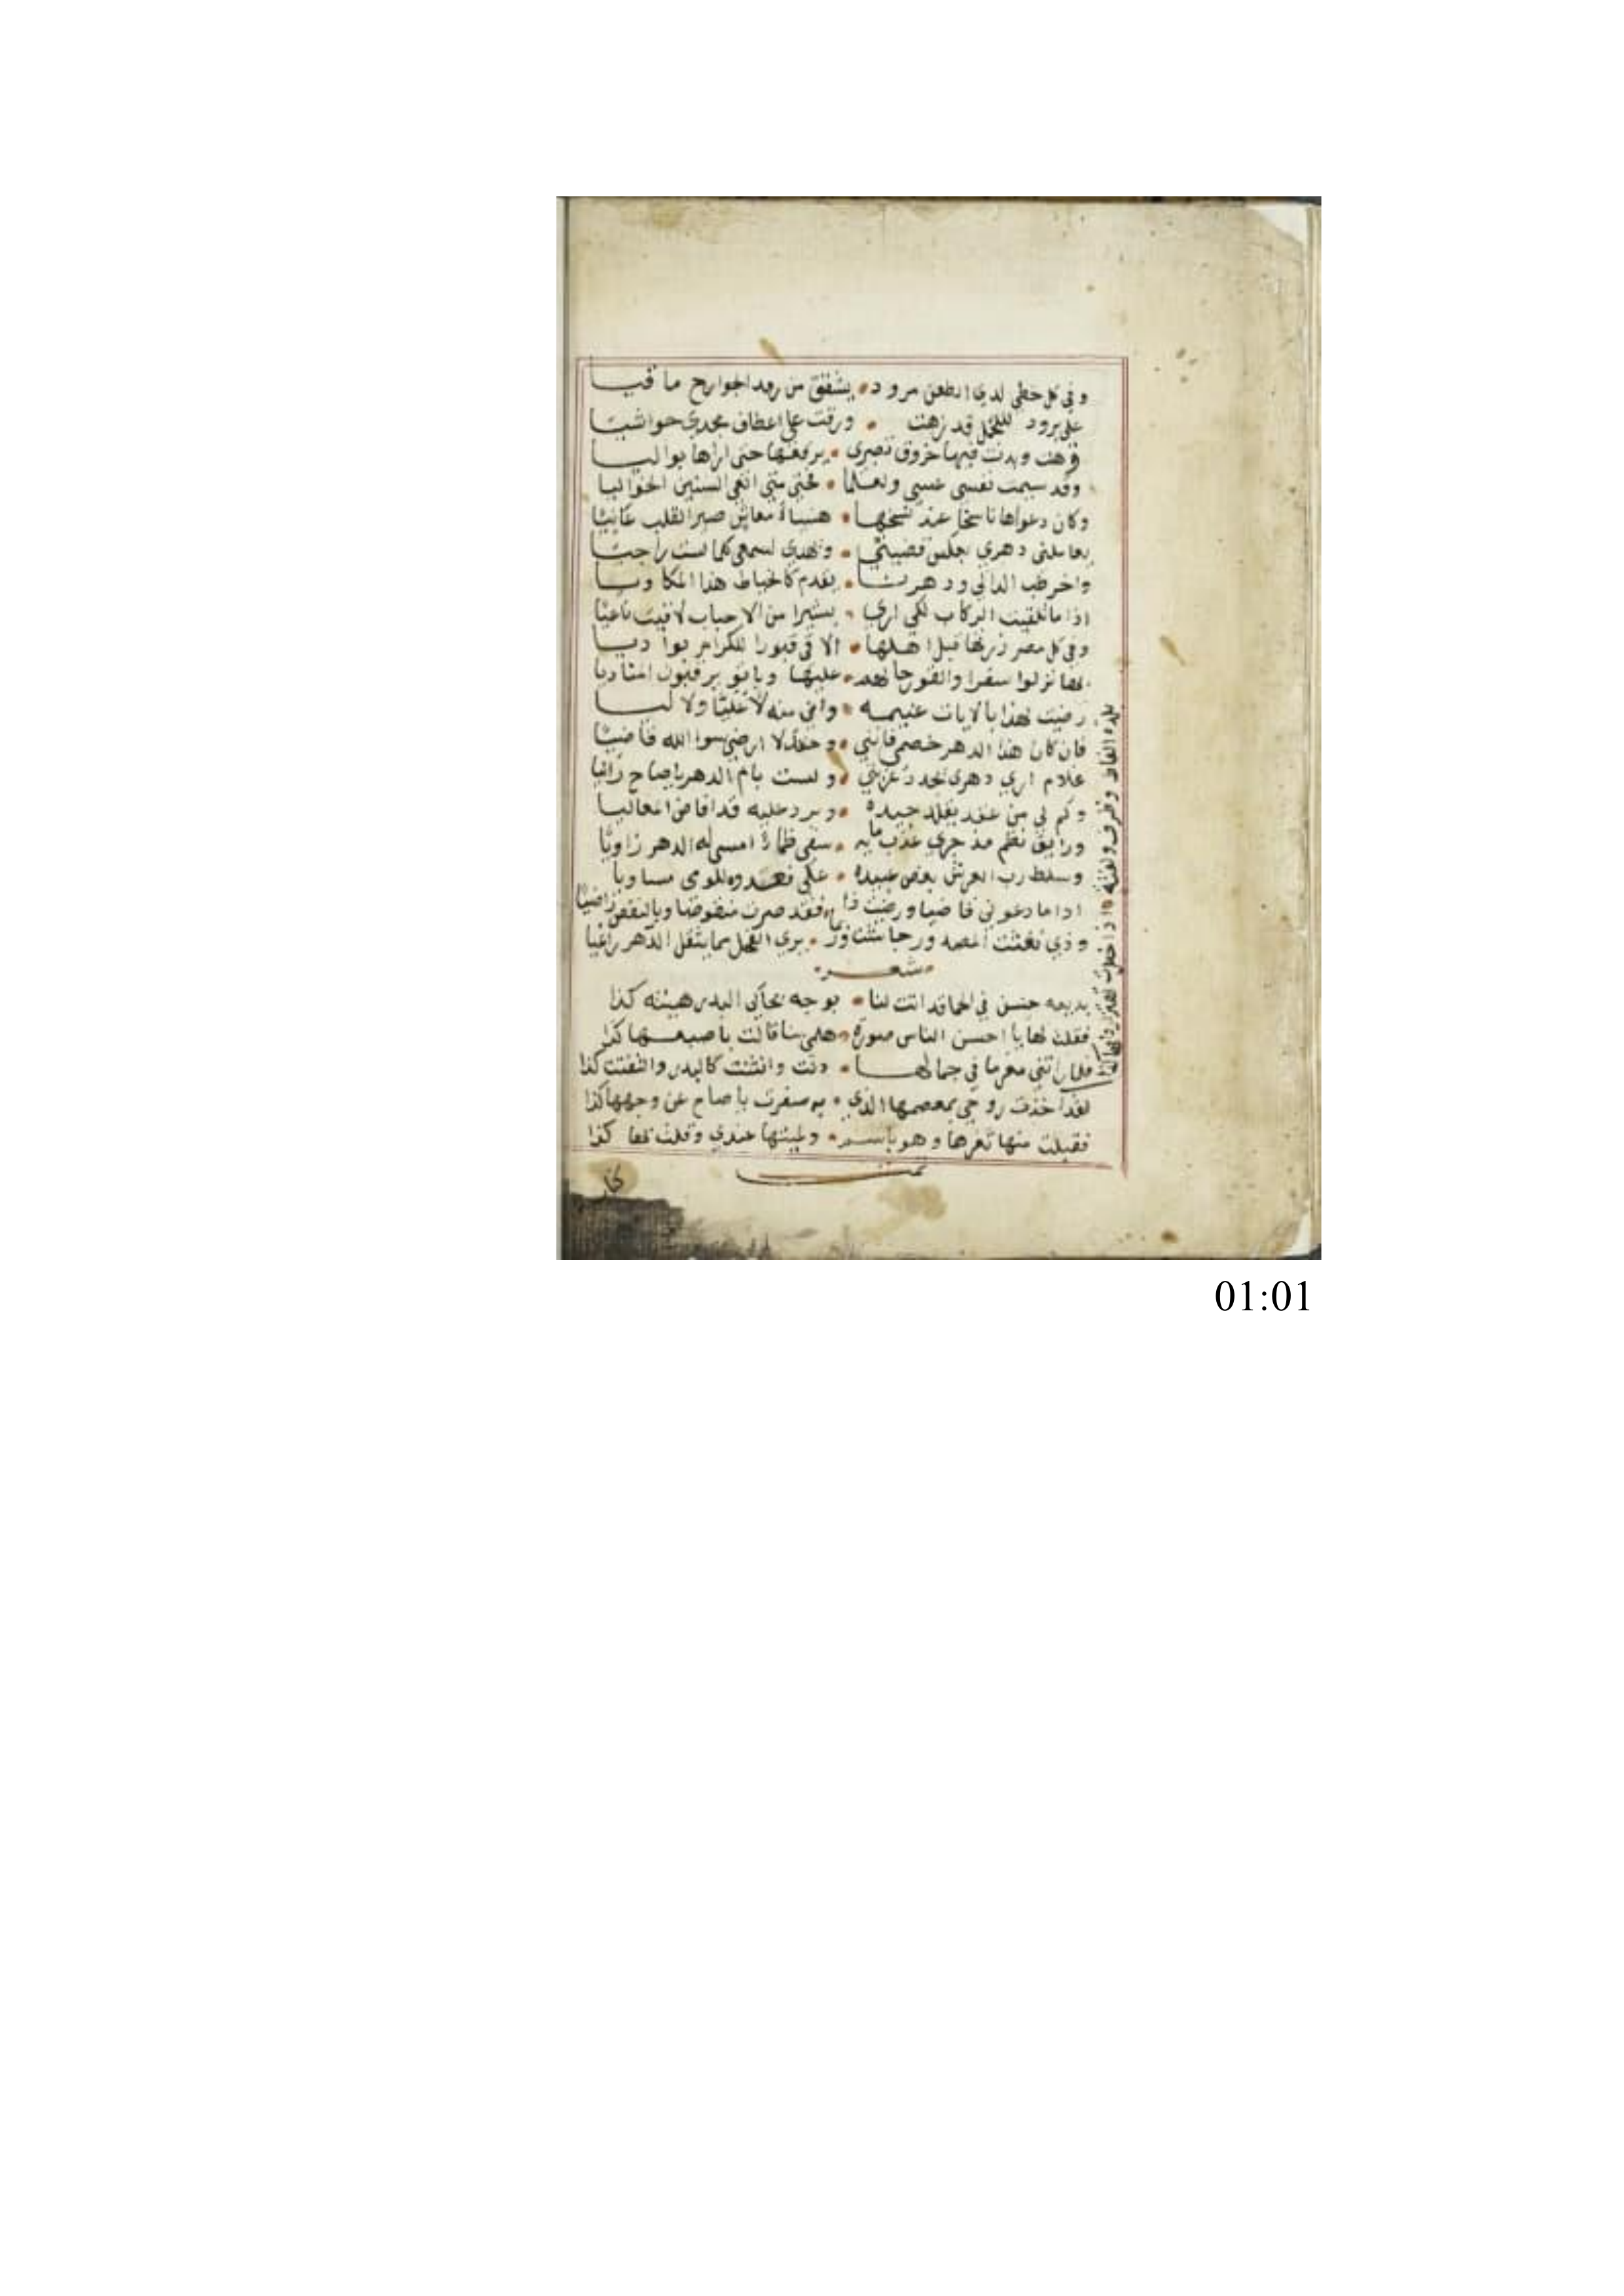 وفي كل خطي لدي الطعن مرود • يشقق من روا الجوارح ما قيا
على برود للتجمل قد زهت • ورقت على اعطاف مجدي حواشيا
وهت وبدت فيها خروق تصبري • يرقعها حتى اراها بواليا
وقد سيمت نفسي عسى ولعلما • فحتى متى انعى السنين الخواليا
وكان دعواها ناسخا عند نسخها • صبر القلب عانيا
يعاملني دهري بعكس قضيتي • ويهدي لسمعي كلما لست راجيا
يقدم كالخياط هذا
اذا ما تلقيت الركاب لكي اري • بشيرا من الاحباب لاقيت ناعيا
وفي كل مصر زرتها قبل اهلها • الاقي قبورا للكرام بواديا
لها نزلوا سفرا والقو رحالهم • عليها وباتو يرقبون المناديا
رضيت لهذا بالاياب غنيمه • واني منه لا عليا ولا ليا
فان كان هذا الدهر خصمي فانني • وحقك لا ارضى سوا الله قاضيا
علام اري دهري يجدد عزلتي • ولست بام الدهر يا صاح زانيا
وكم لي من عقد يقلد جيده • وبرد عليه قد افاض المعاليا
ورايق نظم مذ جري عذب مايه • سقى ظماة امسى له الدهر راويا
وسلط رب العرش بعض عبيده • على فعدوه للوى مساويا
اذا ما دعوني قاضيا ورضيت ذا • فقد صرت منقوضا وبالنقض راضيا
يري الفحل بما يثقل الدهر راغيا
• شعر •
بديعه حسن في الحما قد اتت لنا • بوجه يحاكي البدر هيئته كذا
فقلت لها يا احسن الناس صورة • هلمي بنا قالت باصبعها كذا
فلما راتني مغرما في جمالها • دنت وانثنت كالبدر والتفتت كذا
لقد اخذت روحي بمعصمها الذي • به سفرت يا صاح عن وجهها كذا
فقبلت منها ثغرها وهو باسم • وليتها عندي وقلت لها كذا
تمت
01:01